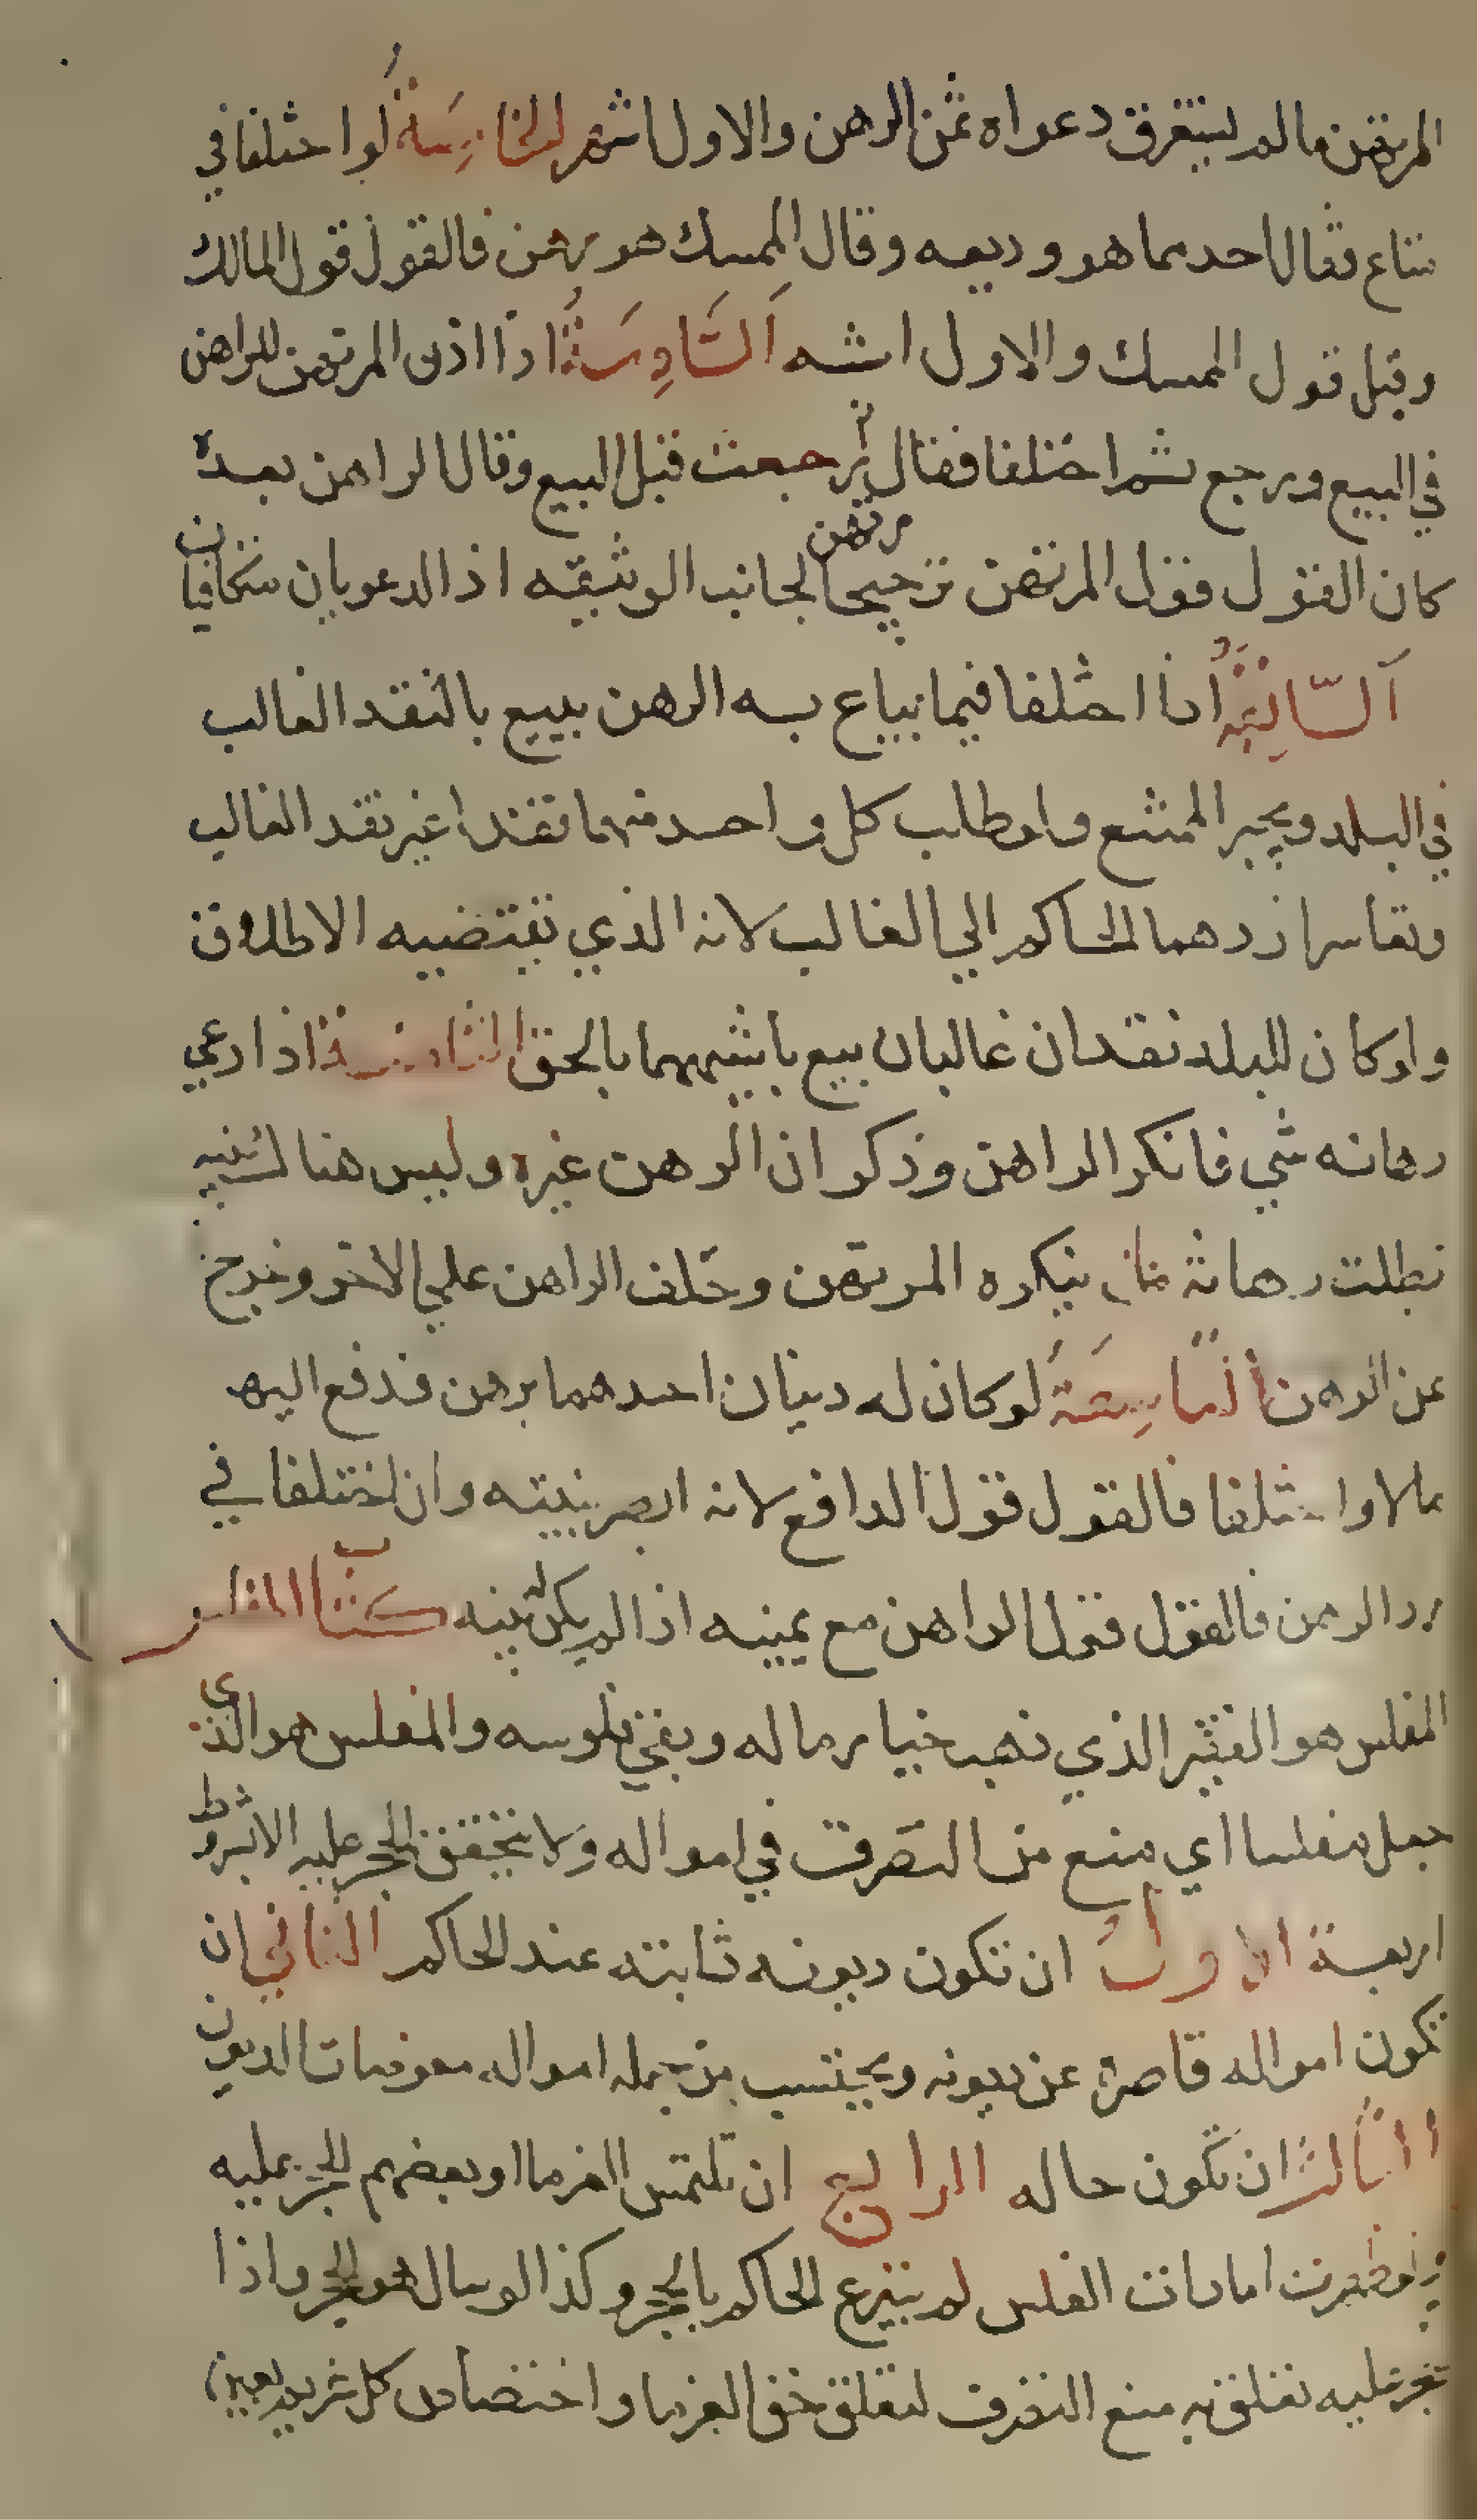 المرتهن ما لم يستغرق دعواه ثمن الرهن والاول اشهر الخامسة لو اختلفا في
متاع فقال احدهما هو وديعه وقال الممسك هو رهن فالقول قول المالك
وقيل قول الممسك والاول اشبه اَلسَّادِسَةُ اذا اذن المرتهن للراهن
في البيع ورجع ثم اختلفا فقال رجعت قبل البيع وقال الراهن بعده
مرتهن
كان القول قول المرتهن ترجيحا لجانب الوثيقه اذ الدعويان متكافيان
اَلسَّابِعَةُ اذا اختلفا فيما يباع به الرهن بيع بالنقد الغالب
في البلد ويجبر الممتنع ولو طلب كل واحد منهما نقدا غير نقد الغالب
وتعاسرا ردهما الحاكم الي الغالب لانه الذي يقتضيه الاطلاق
ولو كان للبلد نقدان غالبان بيع باشبههما بالحق الثامنة اذا ادعي
رهانه شي فانكر الراهن وذكر ان الرهن غيره وليس هنا بينة
بطلت رهانة ينكره المرتهن وحلف الراهن علي الاخر وخرج
عن الرهن التاسعة لو كان له دينان احدهما برهن فدفع اليه
مالا واختلفا فالقول قول الدافع لانه ابصر بنيته وان اختلفا في
رد الرهن فالقول قول الراهن مع يمينه اذا لم يكن له بينه كتاب المفلس
المفلس هو الفقير الذي ذهب خيار ماله وبقي فلوسه والمفلس هو الذي
جعل مفلسا اي منع من التصرف في امواله ولا يتحقق الحجر عليه الا بشروط
اربعة الاول ان تكون ديونه ثابته عند الحاكم الثاني ان
تكون امواله قاصرة عن ديونه ويحتسب من جمله امواله معوضات الديون
الثالث ان تكون حاله الرابع ان تلتمس الغرما او بعضهم الحجر عليه
ولو ظهرت امارات الفلس لم يتبرع الحاكم بالحجر وكذا لو سال هو الحجر واذا
حجر عليه تعلق به منع التصرف لتعلق حق الغرما واختصاص كل غريم بعين